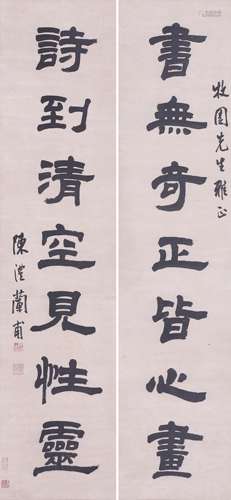 牧園先生雅正
書無奇正皆心畫
詩到清空見性靈
陳澧蘭甫